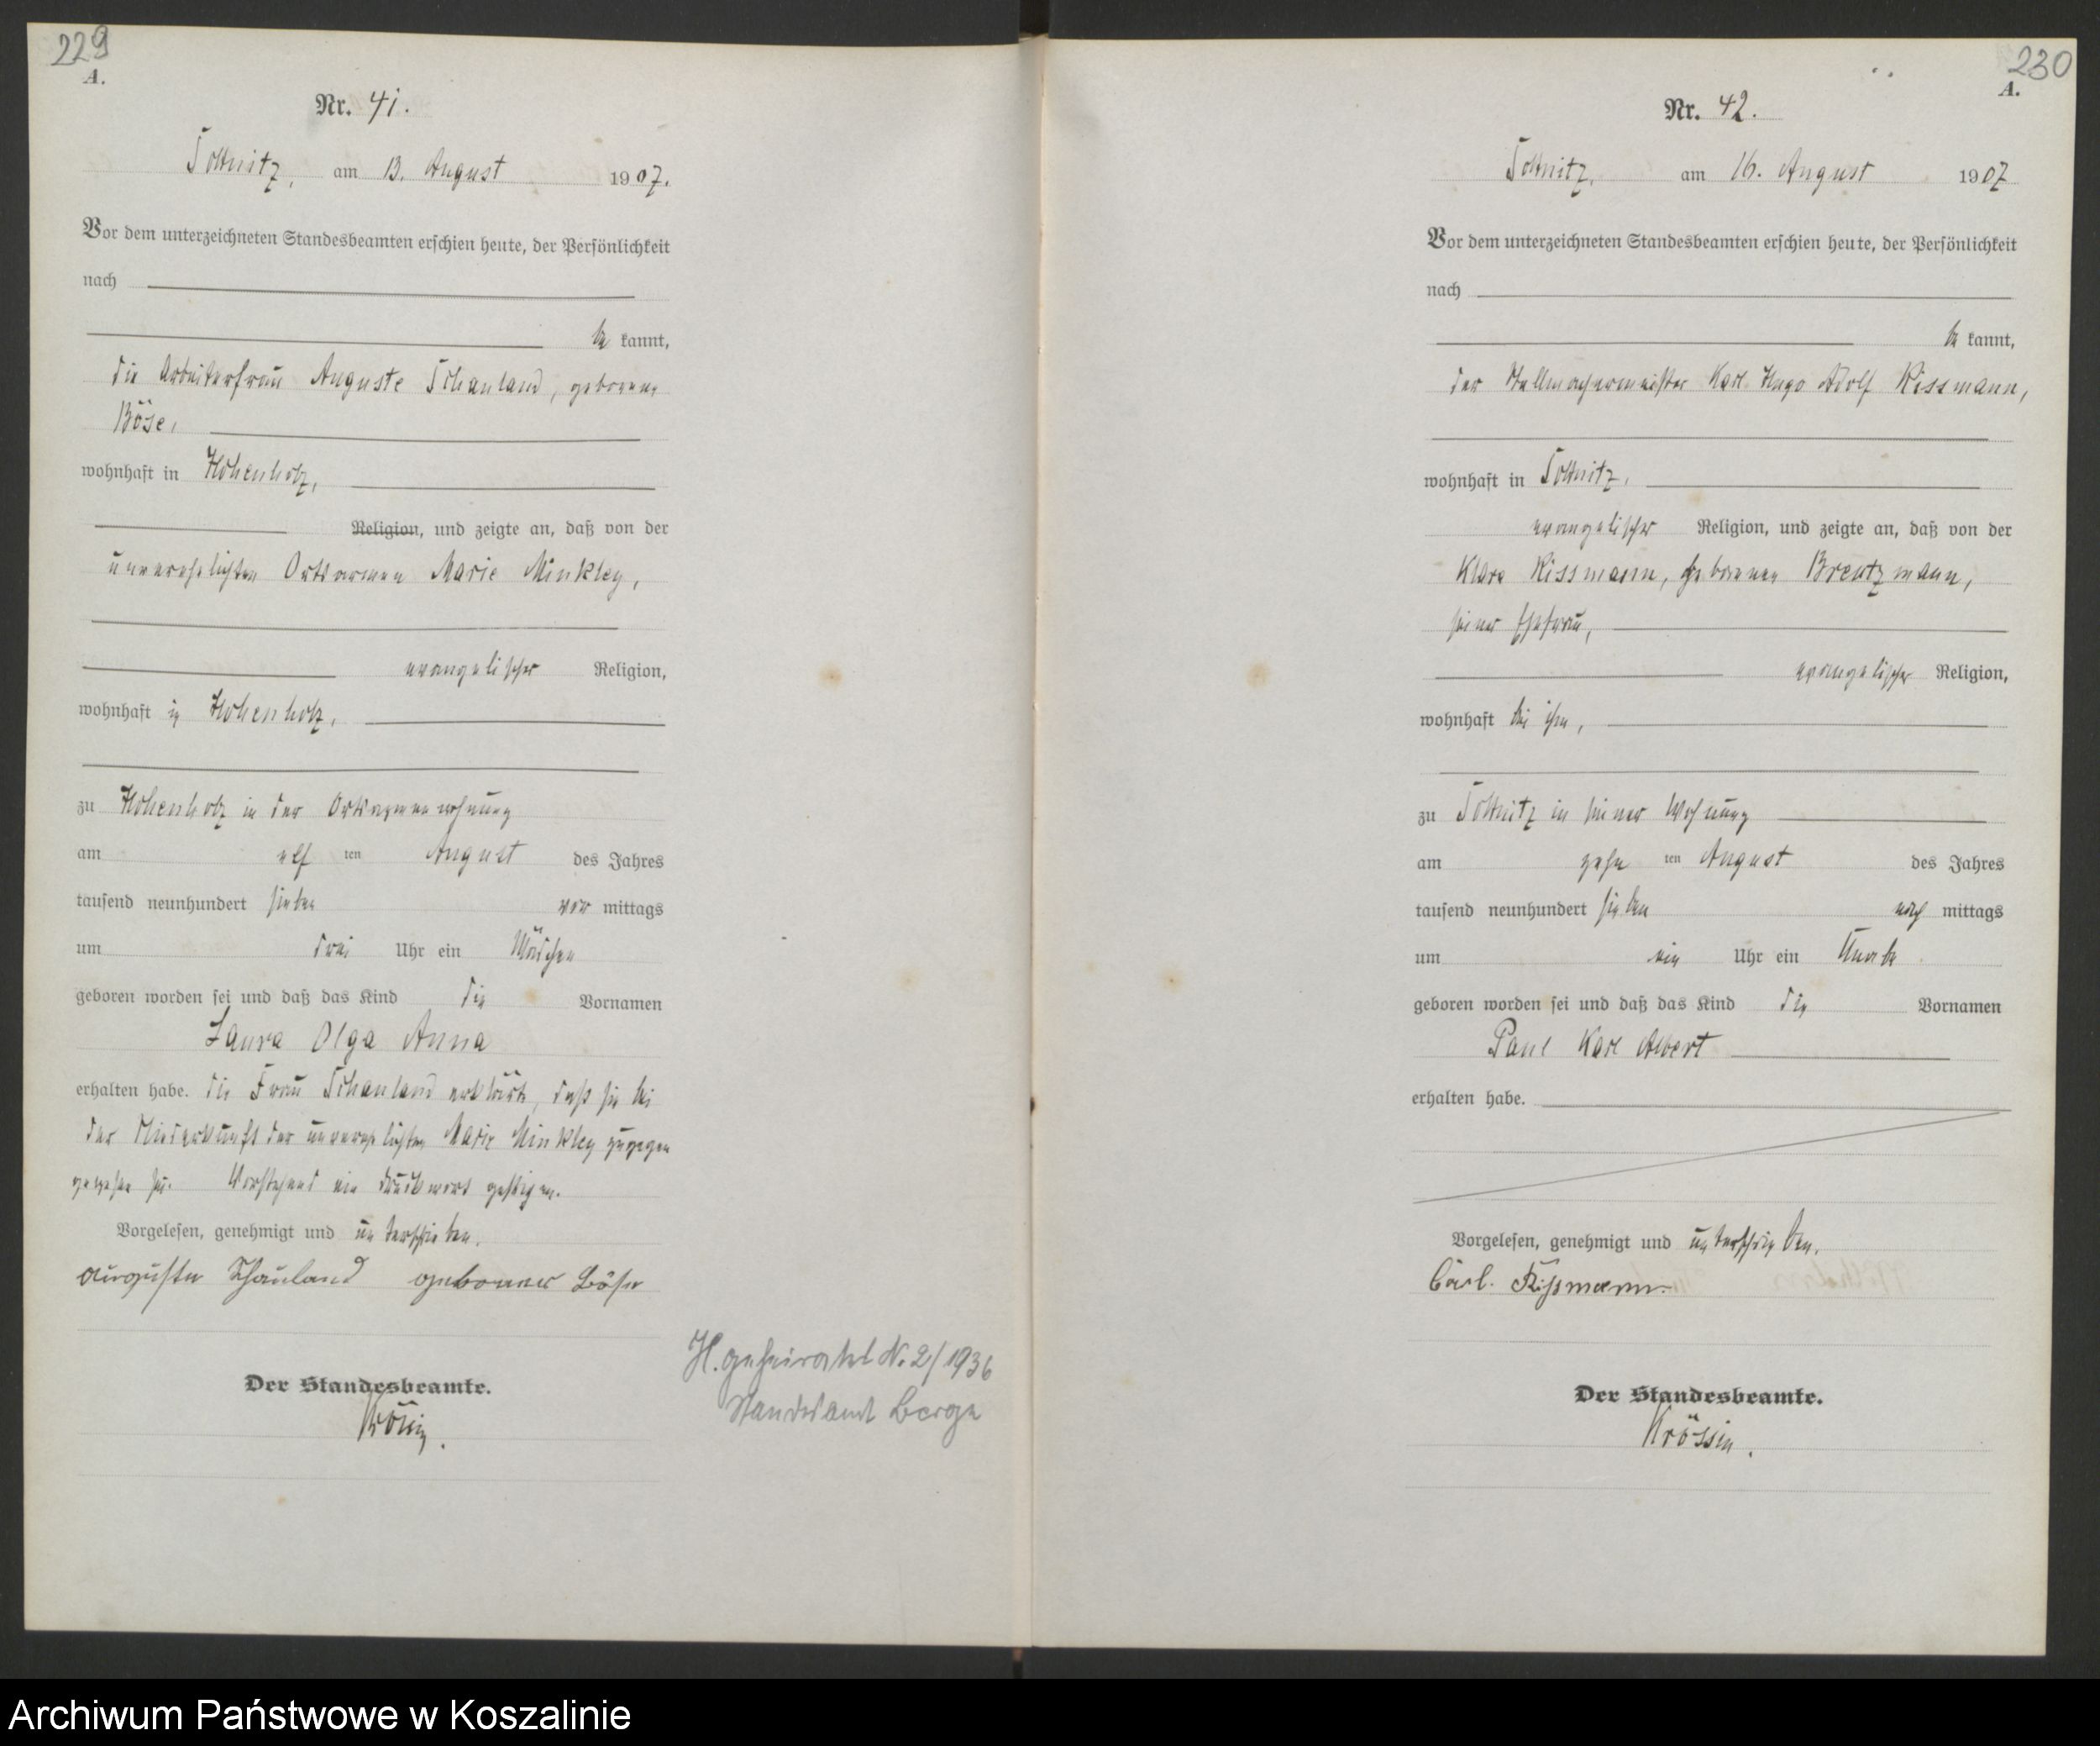 229
A.
Nr. 41.
Soltnitz, am 13. August 1907.
Vor dem unterzeichneten Standesbeamten erschien heute, der Persönlichkeit
nach
be kannt,
die Arbeiterfrau Auguste Schauland, geborene
Böse,
wohnhaft in Hohenholz,
Religion, und zeigte an, daß von der
unverehelichten Ortsarmen Marie Minkley,
evangelischer Religion,
wohnhaft in Hohenholz,
zu Hohenholz in der Ortsarmenwohnung
am elf ten August des Jahres
tausend neunhundert sieben vor mittags
um drei Uhr ein Mädchen
geboren worden sei und daß das Kind die Vornamen
Laura Olga Anna
erhalten habe. Die Frau Schauland erklärte, daß sie bei
der Niederkunft der unverehelichten Marie Minkley zugegen
gewesen sei. Vorstehend ein Druckwort gestrichen.
Vorgelesen, genehmigt und unterschrieben.
Auguste Schauland geborene Böse
Der Standesbeamte.
H. geheiratet N. 2/1936
Standesamt Berge
230
A.
Nr. 42.
Soltnitz, am 16. August 1907
Vor dem unterzeichneten Standesbeamten erschien heute, der Persönlichkeit
nach
be kannt,
der Stellmachermeister Karl Hugo Adolf Kissmann,
wohnhaft in Soltnitz,
evangelischer Religion, und zeigte an, daß von der
Klara Kissmann, geborenen Breutzmann,
seiner Ehefrau,
evangelischer Religion,
wohnhaft bei ihm,
zu Soltnitz in seiner Wohnung
am zehn ten August des Jahres
tausend neunhundert sieben nach mittags
um ein Uhr ein Knabe
geboren worden sei und daß das Kind die Vornamen
Paul Karl Albert
erhalten habe.
Vorgelesen, genehmigt und unterschrieben.
Carl. Kissmann
Der Standesbeamte.
Krössin.
Archiwum Państwowe w Koszalinie